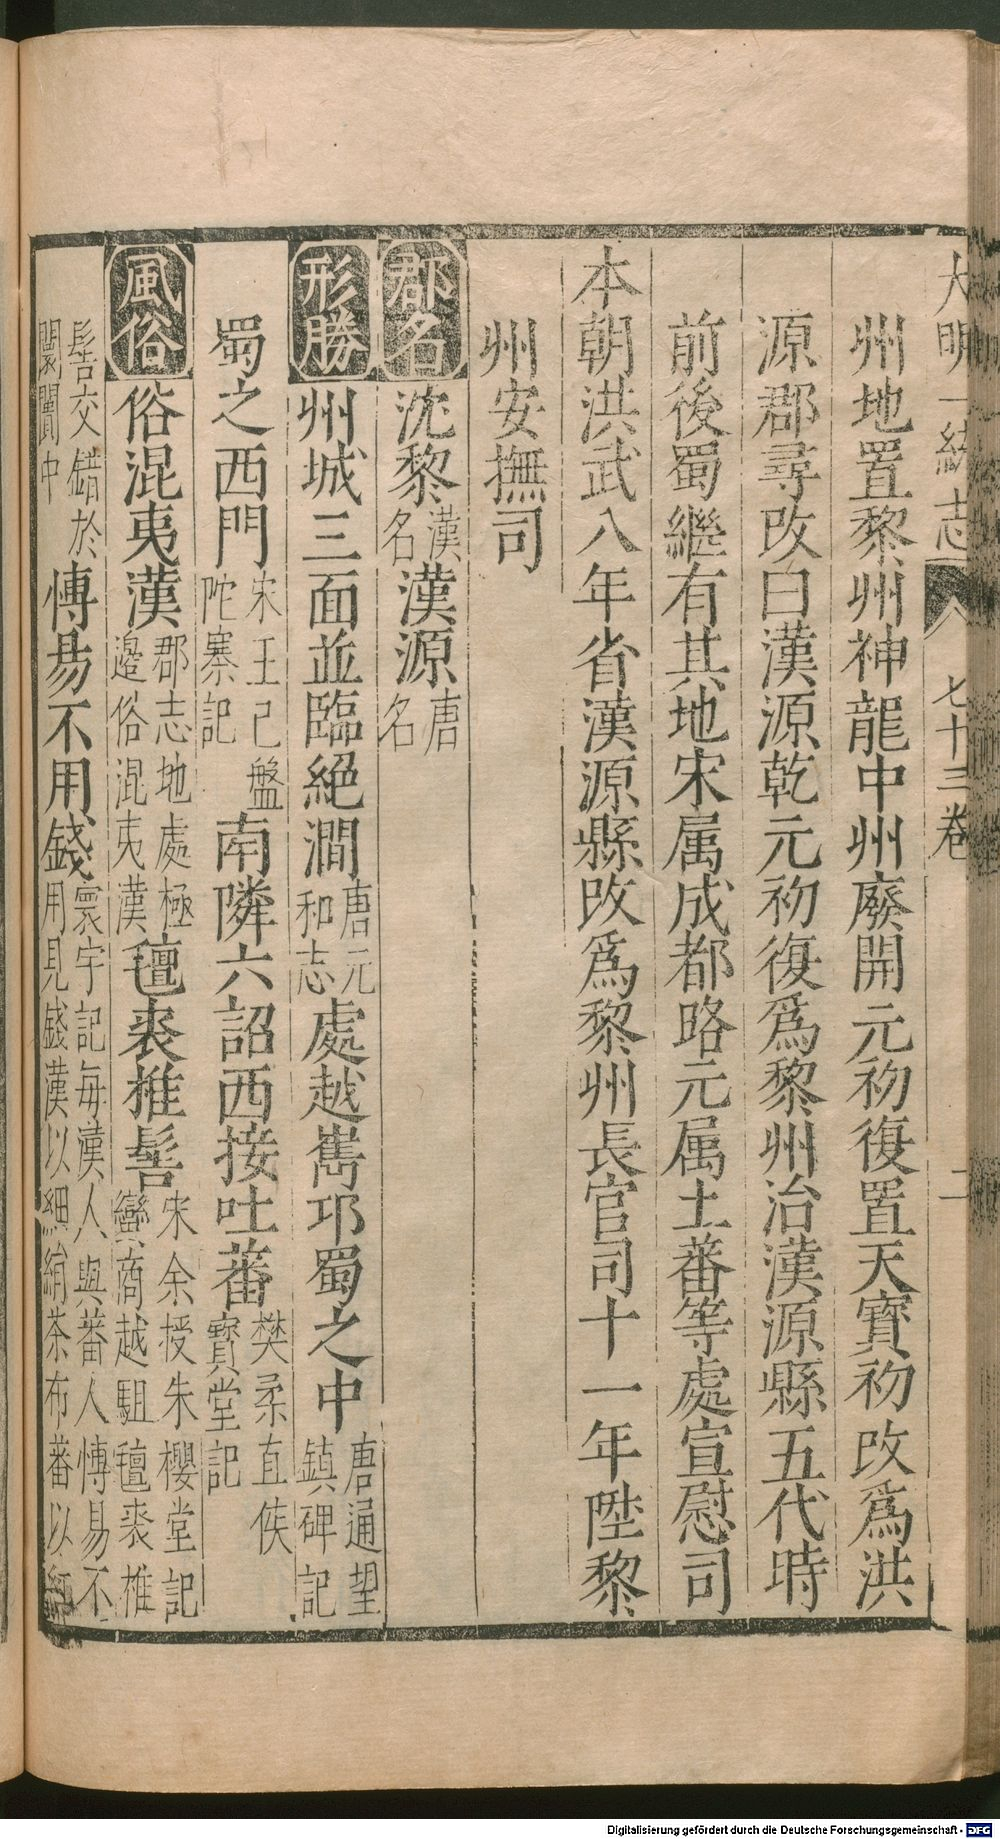 大明一統志
七十三卷
二
州地置黎州神龍中州廢開元初復置天寶初改爲洪
源郡尋改曰漢源乾元初復爲黎州治漢源縣五代時
前後蜀繼有其地宋属成都路元属土蕃等處宣慰司
本朝洪武八年省漢源縣改爲黎州長官司十一年陞黎
州安撫司
郡名 沈黎 漢名 漢源 唐名
形勝 州城三面並臨絕澗 唐元和志 處越嶲邛蜀之中 唐通望鎮碑記
蜀之西門 宋王己盤陀寨記 南隣六詔西接吐蕃 樊柔直俟寶堂記
風俗 俗混夷漢 郡志地處極邊俗混夷漢 氊裘推髻 宋余授朱櫻堂記蠻商越駔氊裘椎
髻交錯於闤闠中 慱易不用錢 寰宇記每漢人與蕃人慱易不用見錢漢以細絹茶布蕃以紅
Digitalisierung gefördert durch die Deutsche Forschungsgemeinschaft - DFG